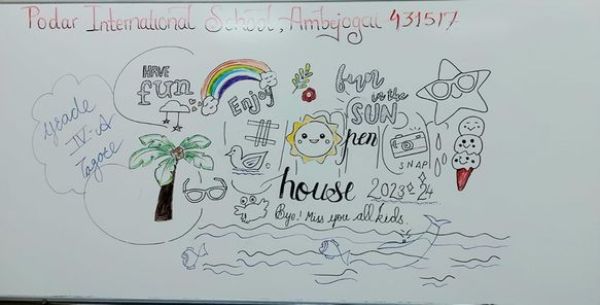 Podar International School, Ambejogai 431517
HAVE
fun
Enjoy
fun
in the
SUN
Grade
IV-A
Tagore
Open
SNAP
house 2023-24
Bye! Miss you all kids.